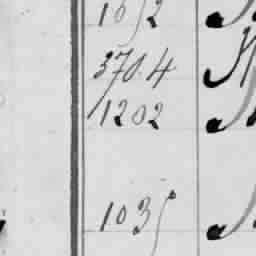 1652
3704
1202
1035